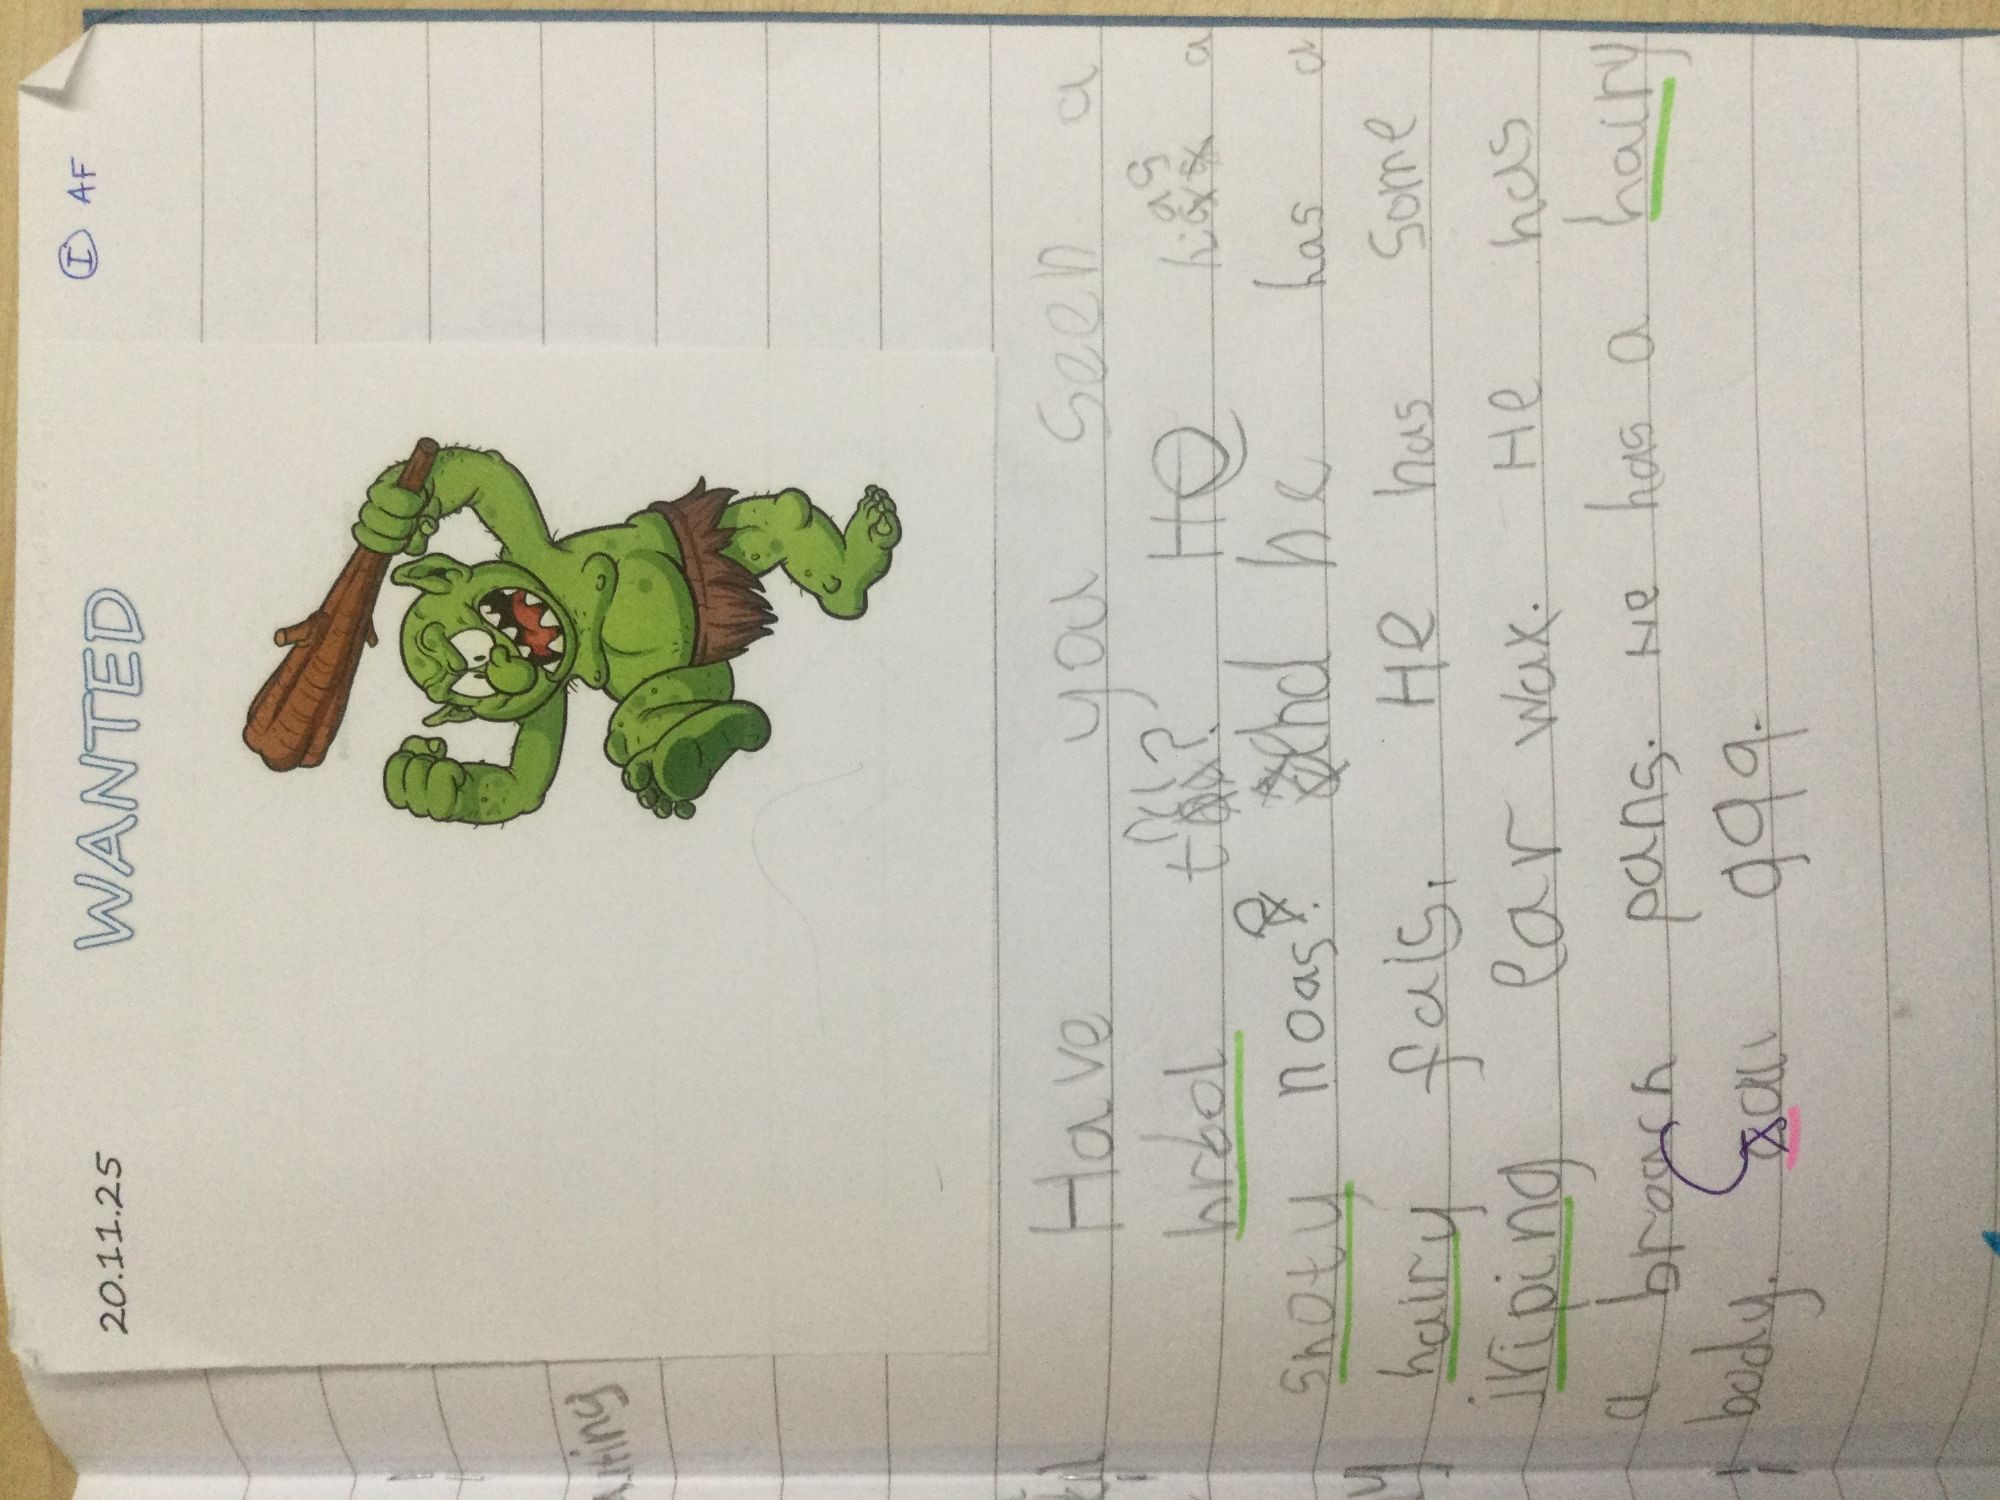 20.11.25
WANTED
I AF
Have you seen a
hrbol this? He has a
snoty noas. and he has a
hairy fais. He has some
driping ear wax. He has
a brown pans. He has a hairy
body.
writing